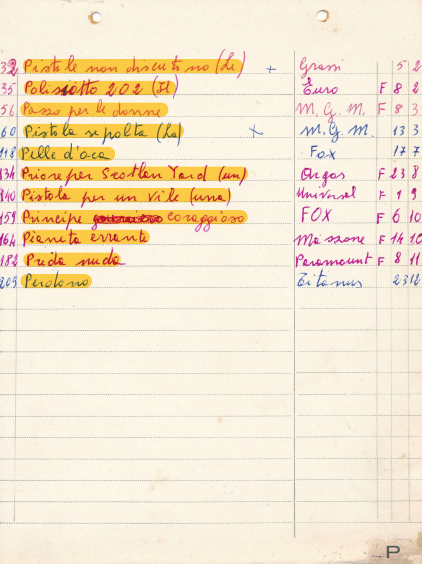 32 Pistole non discutono (Le) + Grassi 5 2
35 Poliziotto 202 (Il) Euro F 8 2
56 Pazzo per le donne M. G. M. F 8 3
60 Pistola sepolta (La) + M. G. M. 13 3
118 Pelle d'oca Fox 17 7
134 Prione per Scotlan Yard (un) Orgas F 23 8
140 Pistola per un vile (una) Universal F 1 9
159 Principe coraggioso FOX F 6 10
164 Pianeta errante F 14 10
182 Preda nuda Paramount F 8 11
209 Perdono Titanus 23 12
P